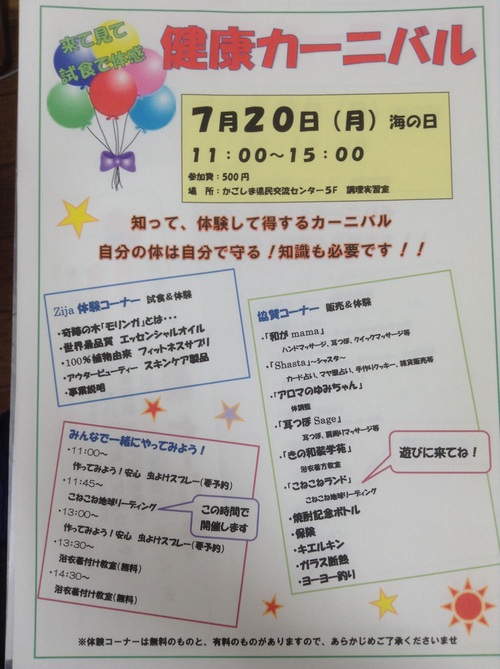 来て見て
試食で体感
健康カーニバル
7月20日（月）海の日
11：00～15：00
参加費：500円
場　所：かごしま県民交流センター5F　調理実習室
知って、体験して得するカーニバル
自分の体は自分で守る！知識も必要です！！
Zija 体験コーナー 試食＆体験
・奇蹟の木「モリンガ」とは・・・
・世界最品質　エッセンシャルオイル
・100%植物由来　フィットネスサプリ
・アウタービューティー　スキンケア製品
・事業説明
みんなで一緒にやってみよう！
・11:00～
作ってみよう！安心　虫よけスプレー(要予約)
・11:45～
こねこね地球リーディング
・13:00～
作ってみよう！安心　虫よけスプレー(要予約)
・13:30～
浴衣着付け教室(無料)
・14:30～
浴衣着付け教室(無料)
この時間で
開催します
協賛コーナー　販売＆体験
・「和が mama」
ハンドマッサージ、耳つぼ、クイックマッサージ等
・「Shasta」～シャスター～
カード占い、ママ服占い、手作りクッキー、雑貨販売等
・「アロマのゆみちゃん」
体調整
・「耳つぼ Sage」
耳つぼ、肩廻りマッサージ等
・「きの和装学苑」
浴衣着方教室
・「こねこねランド」
こねこね地球リーディング
・焼酎記念ボトル
・保険
・キエルキン
・ガラス断熱
・ヨーヨー釣り
遊びに来てね！
※体験コーナーは無料のものと、有料のものがありますので、あらかじめご了承くださいませ